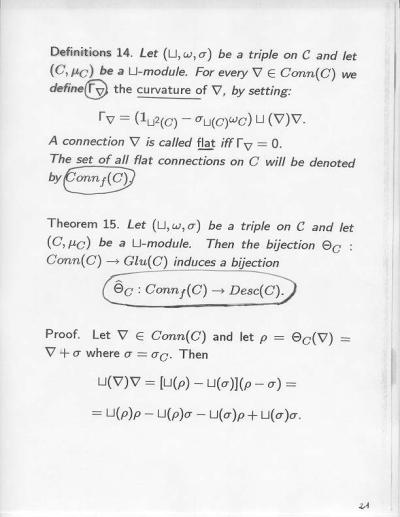 Definitions 14. Let (⊔, ω, σ) be a triple on C and let
(C, μ_C) be a ⊔-module. For every ∇ ∈ Conn(C) we
define Γ_∇, the curvature of ∇, by setting:
Γ_∇ = (1_{⊔²(C)} − σ_{⊔(C)}ω_C) ⊔ (∇)∇.
A connection ∇ is called flat iff Γ_∇ = 0.
The set of all flat connections on C will be denoted
by Conn_f(C).
Theorem 15. Let (⊔, ω, σ) be a triple on C and let
(C, μ_C) be a ⊔-module. Then the bijection Θ_C :
Conn(C) → Glu(C) induces a bijection
Θ̂_C : Conn_f(C) → Desc(C).
Proof. Let ∇ ∈ Conn(C) and let ρ = Θ_C(∇) =
∇ + σ where σ = σ_C. Then
⊔(∇)∇ = [⊔(ρ) − ⊔(σ)](ρ − σ) =
= ⊔(ρ)ρ − ⊔(ρ)σ − ⊔(σ)ρ + ⊔(σ)σ.
21